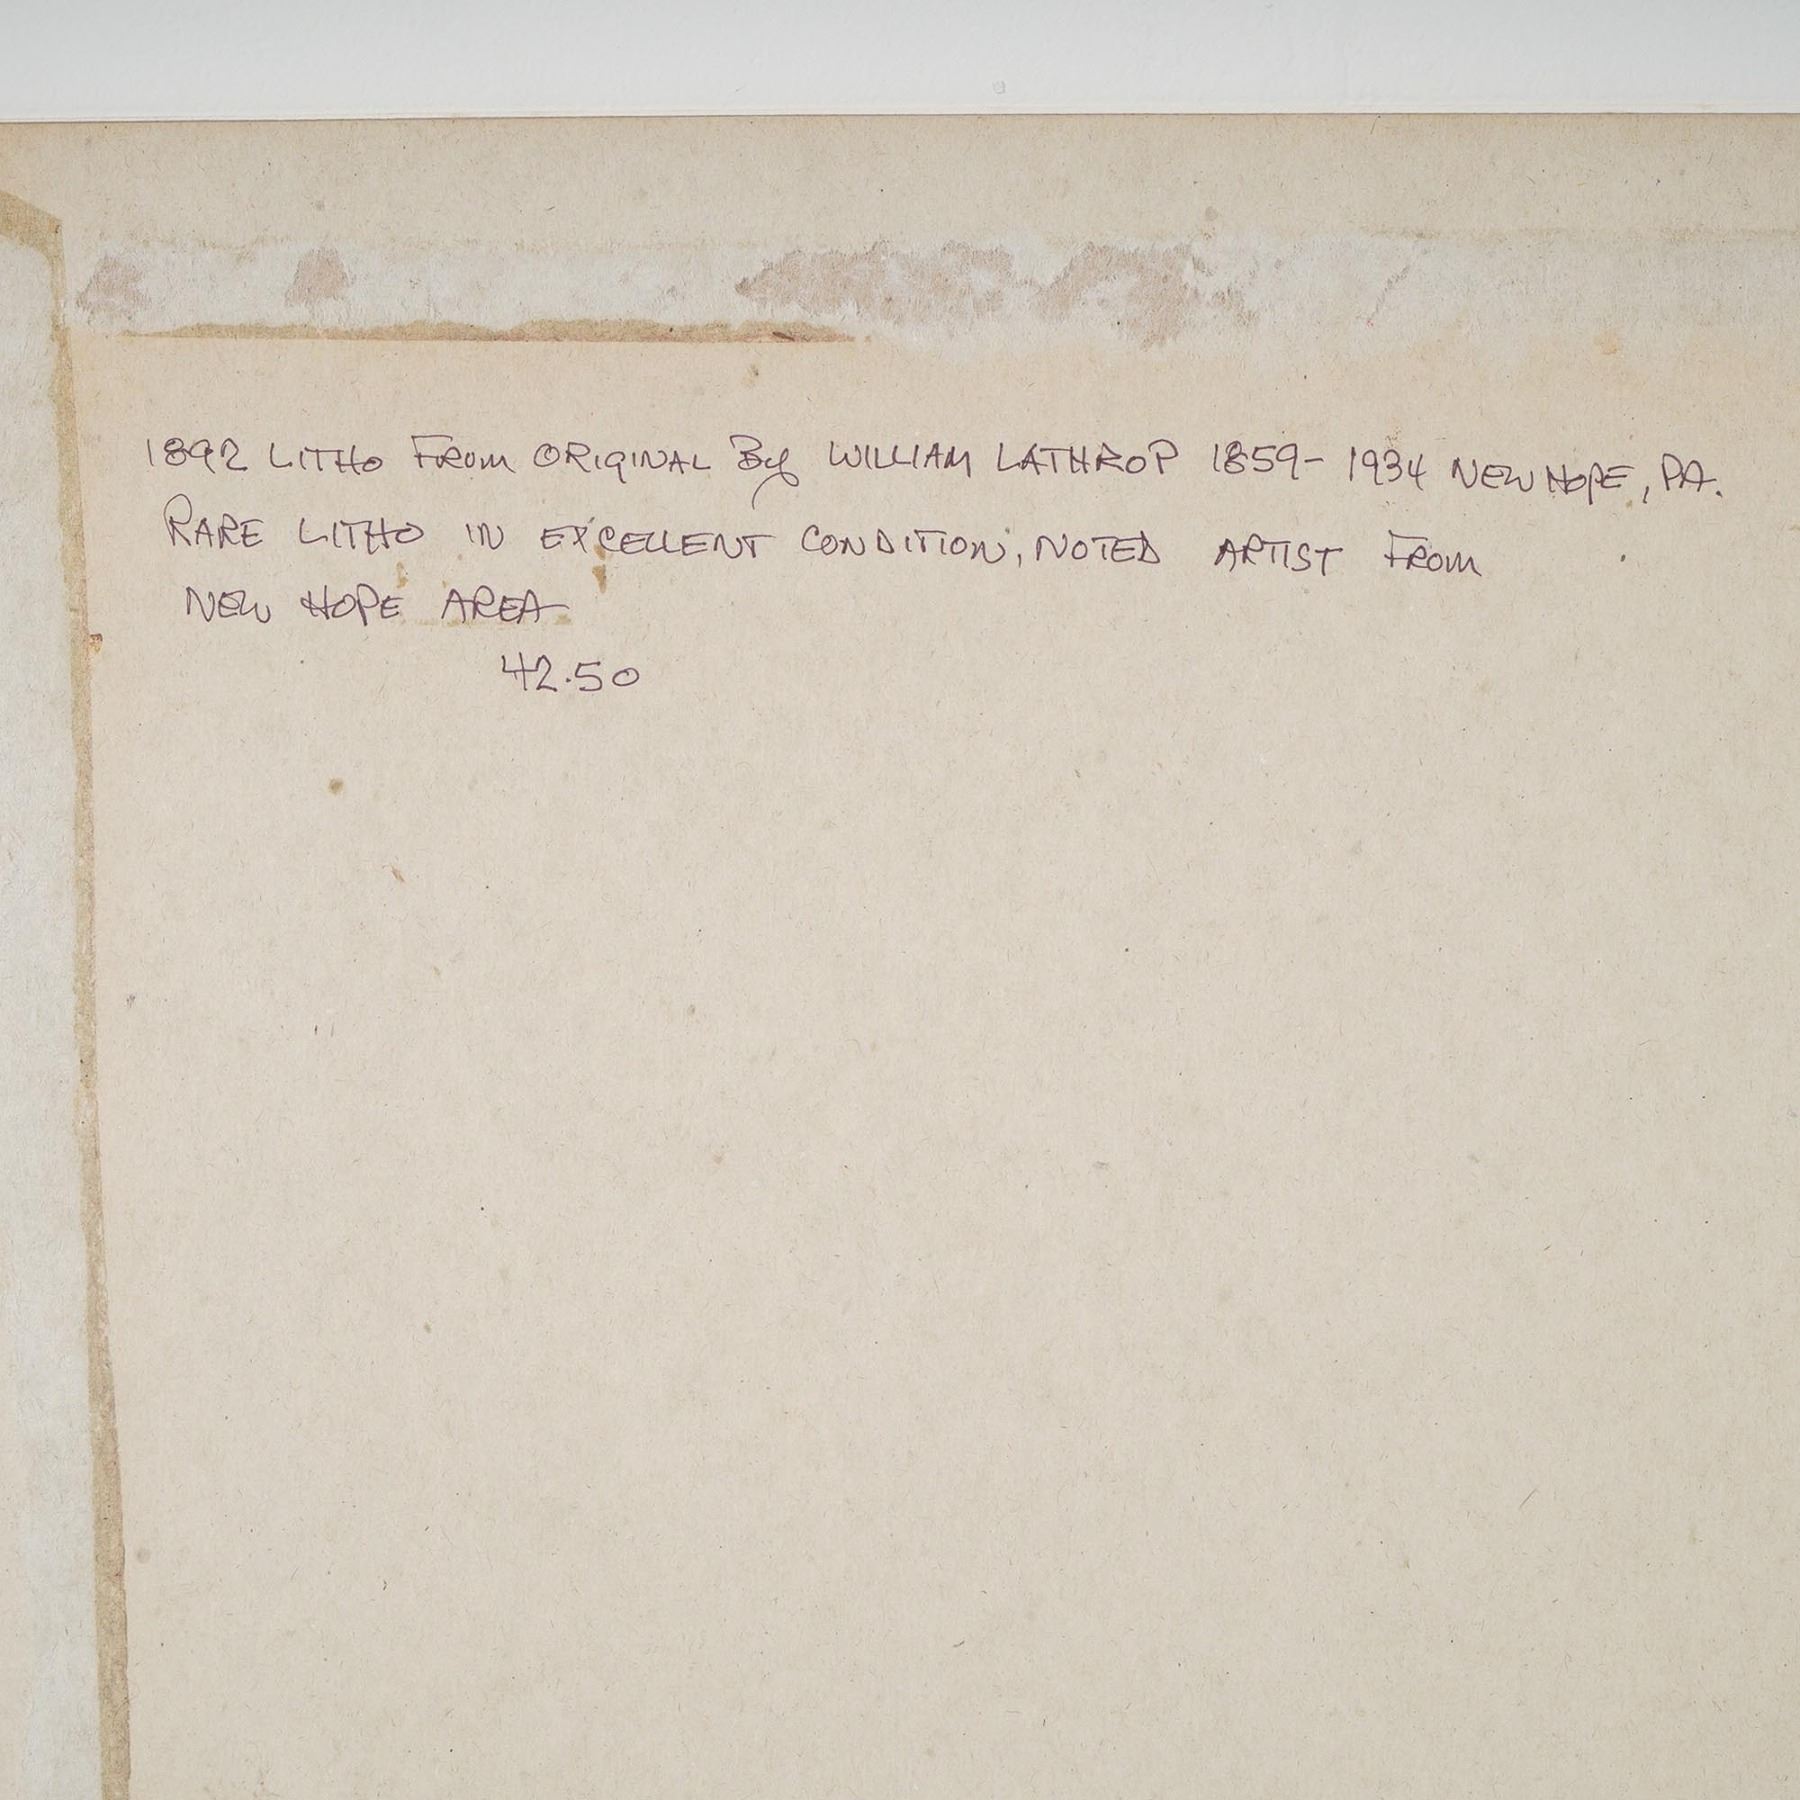 1892 LITHO FROM ORIGINAL By WILLIAM LATHROP 1859-1934 NEW HOPE, PA.
RARE LITHO IN EXCELLENT CONDITION, NOTED ARTIST FROM
NEW HOPE AREA
42.50